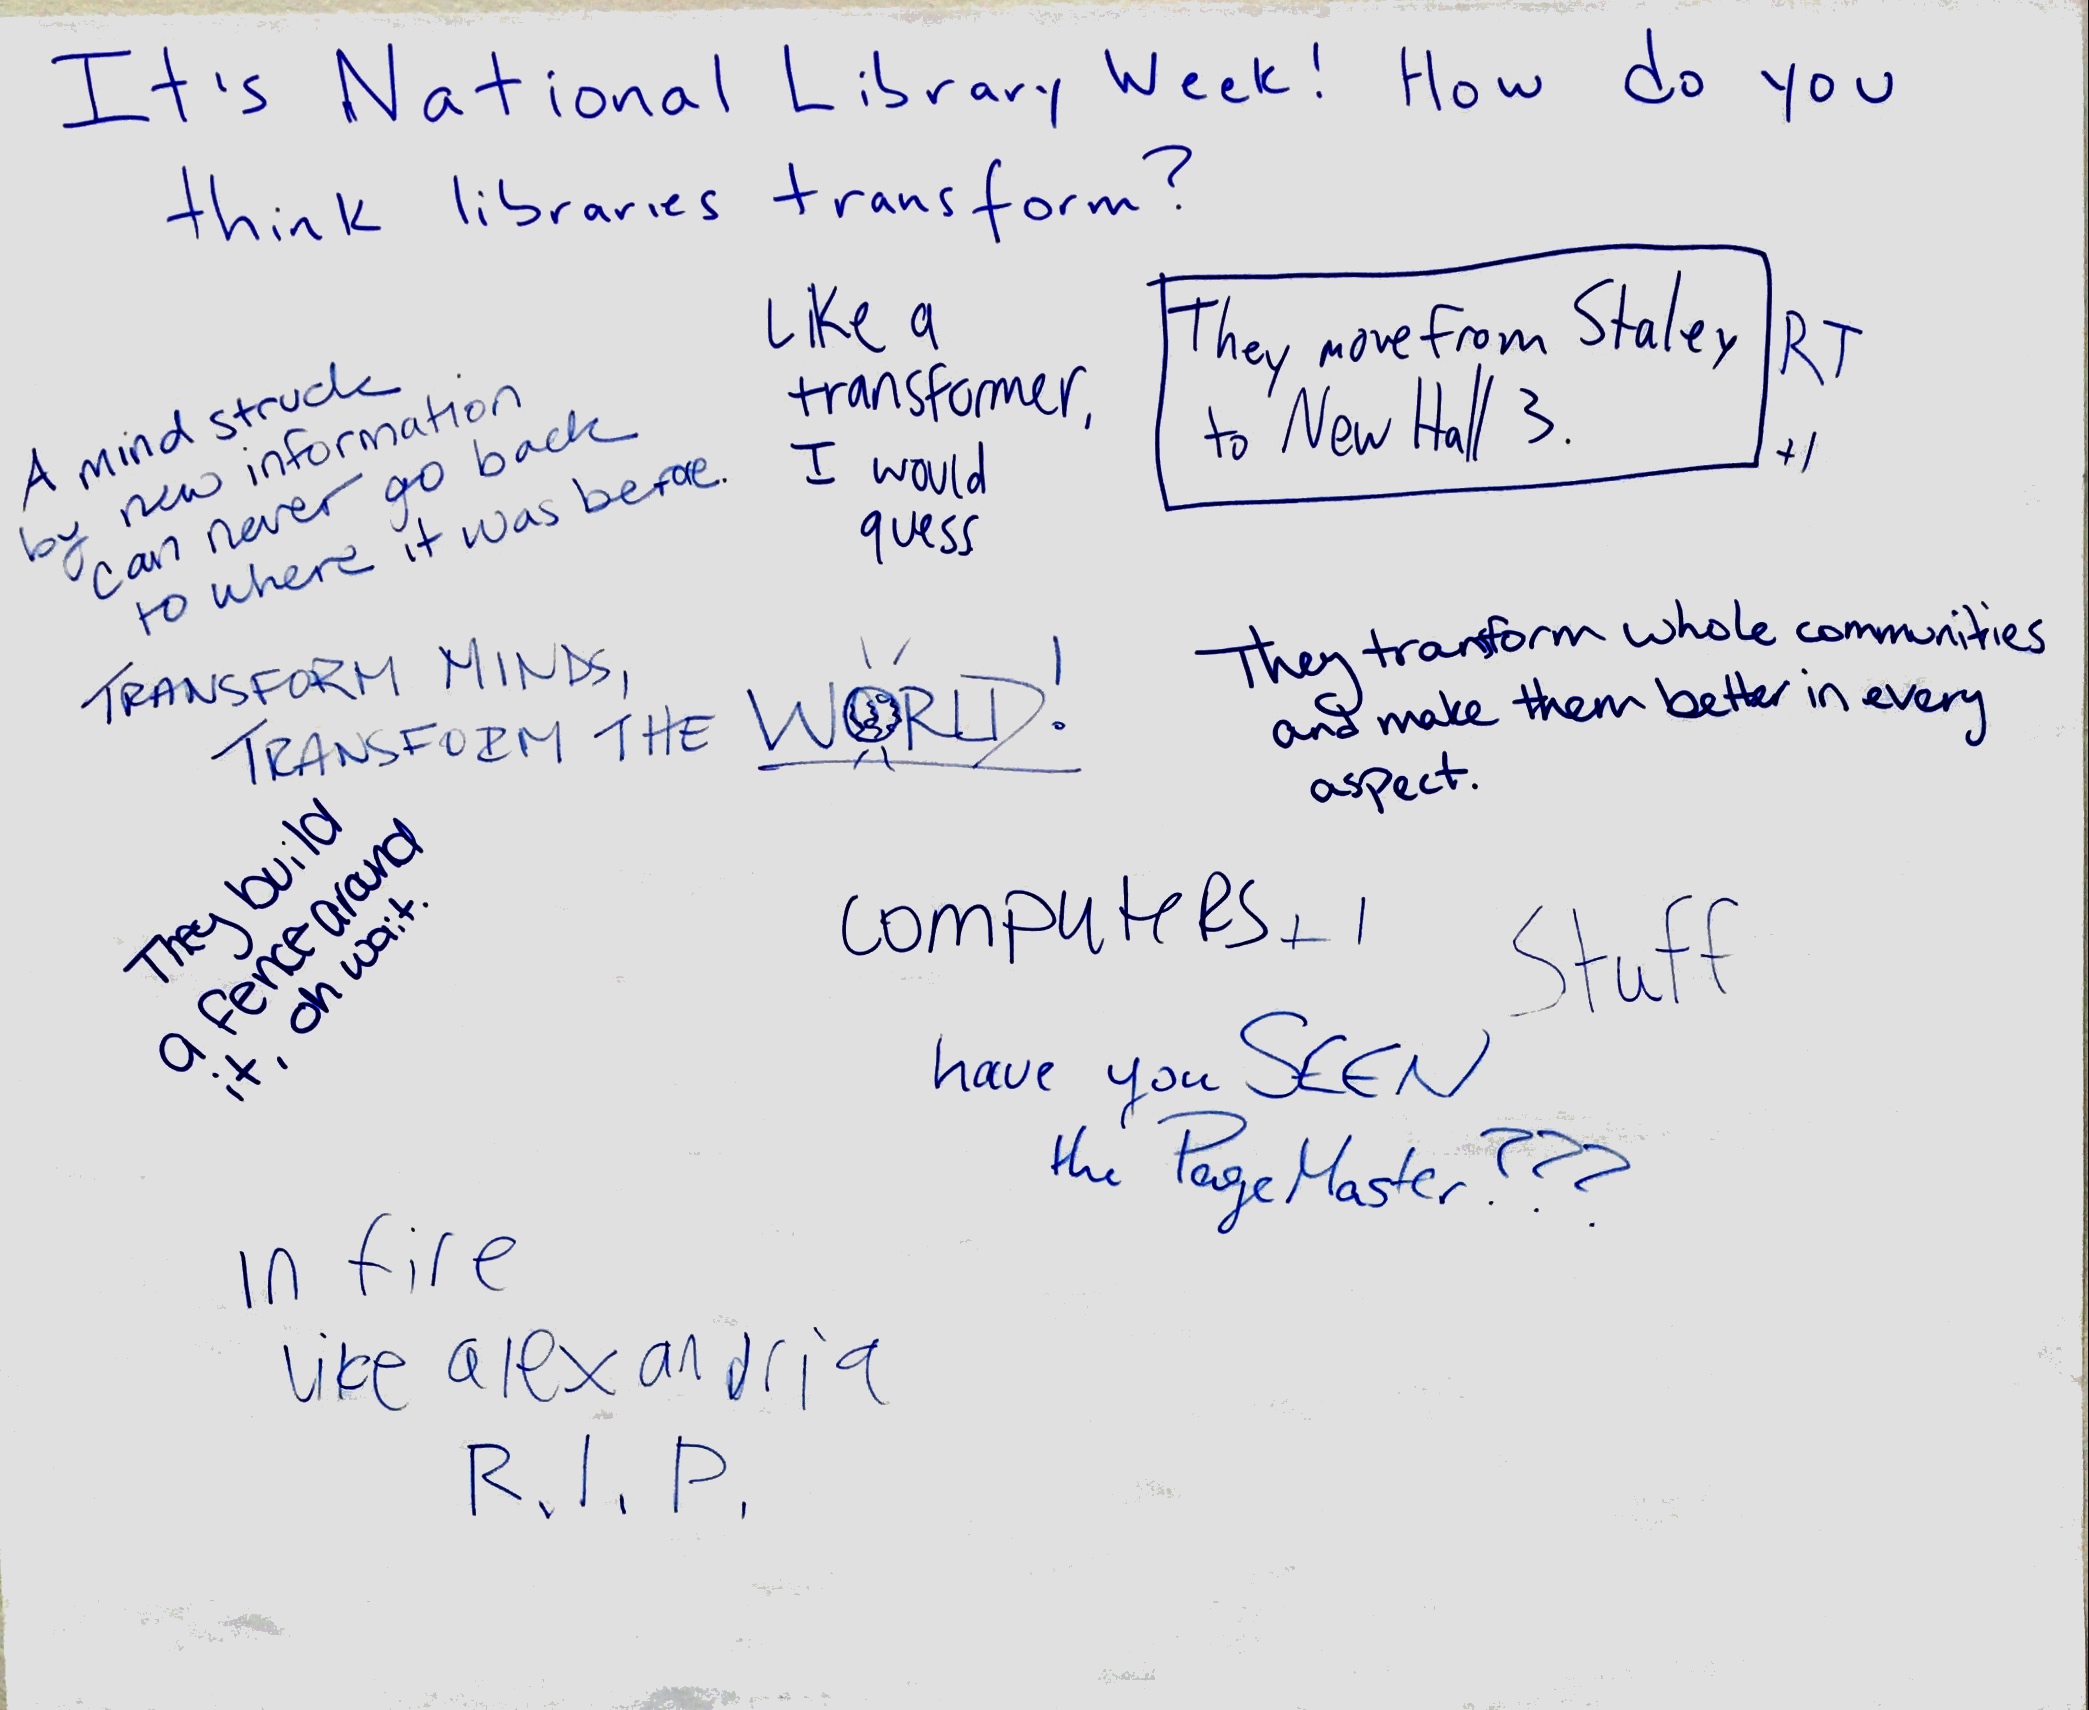 It's National Library Week! How do you
think libraries transform?
Like a
transformer,
I would
guess
They move from Staley
to New Hall 3.
RT
+1
A mind struck
by new information
can never go back
to where it was before.
TRANSFORM MINDS,
TRANSFORM THE WORLD!
They transform whole communities
and make them better in every
aspect.
They build
a fence around
it, oh wait.
computeRs +1
Stuff
have you SEEN
the PageMaster???
in fire
like alexandria
R.I.P.